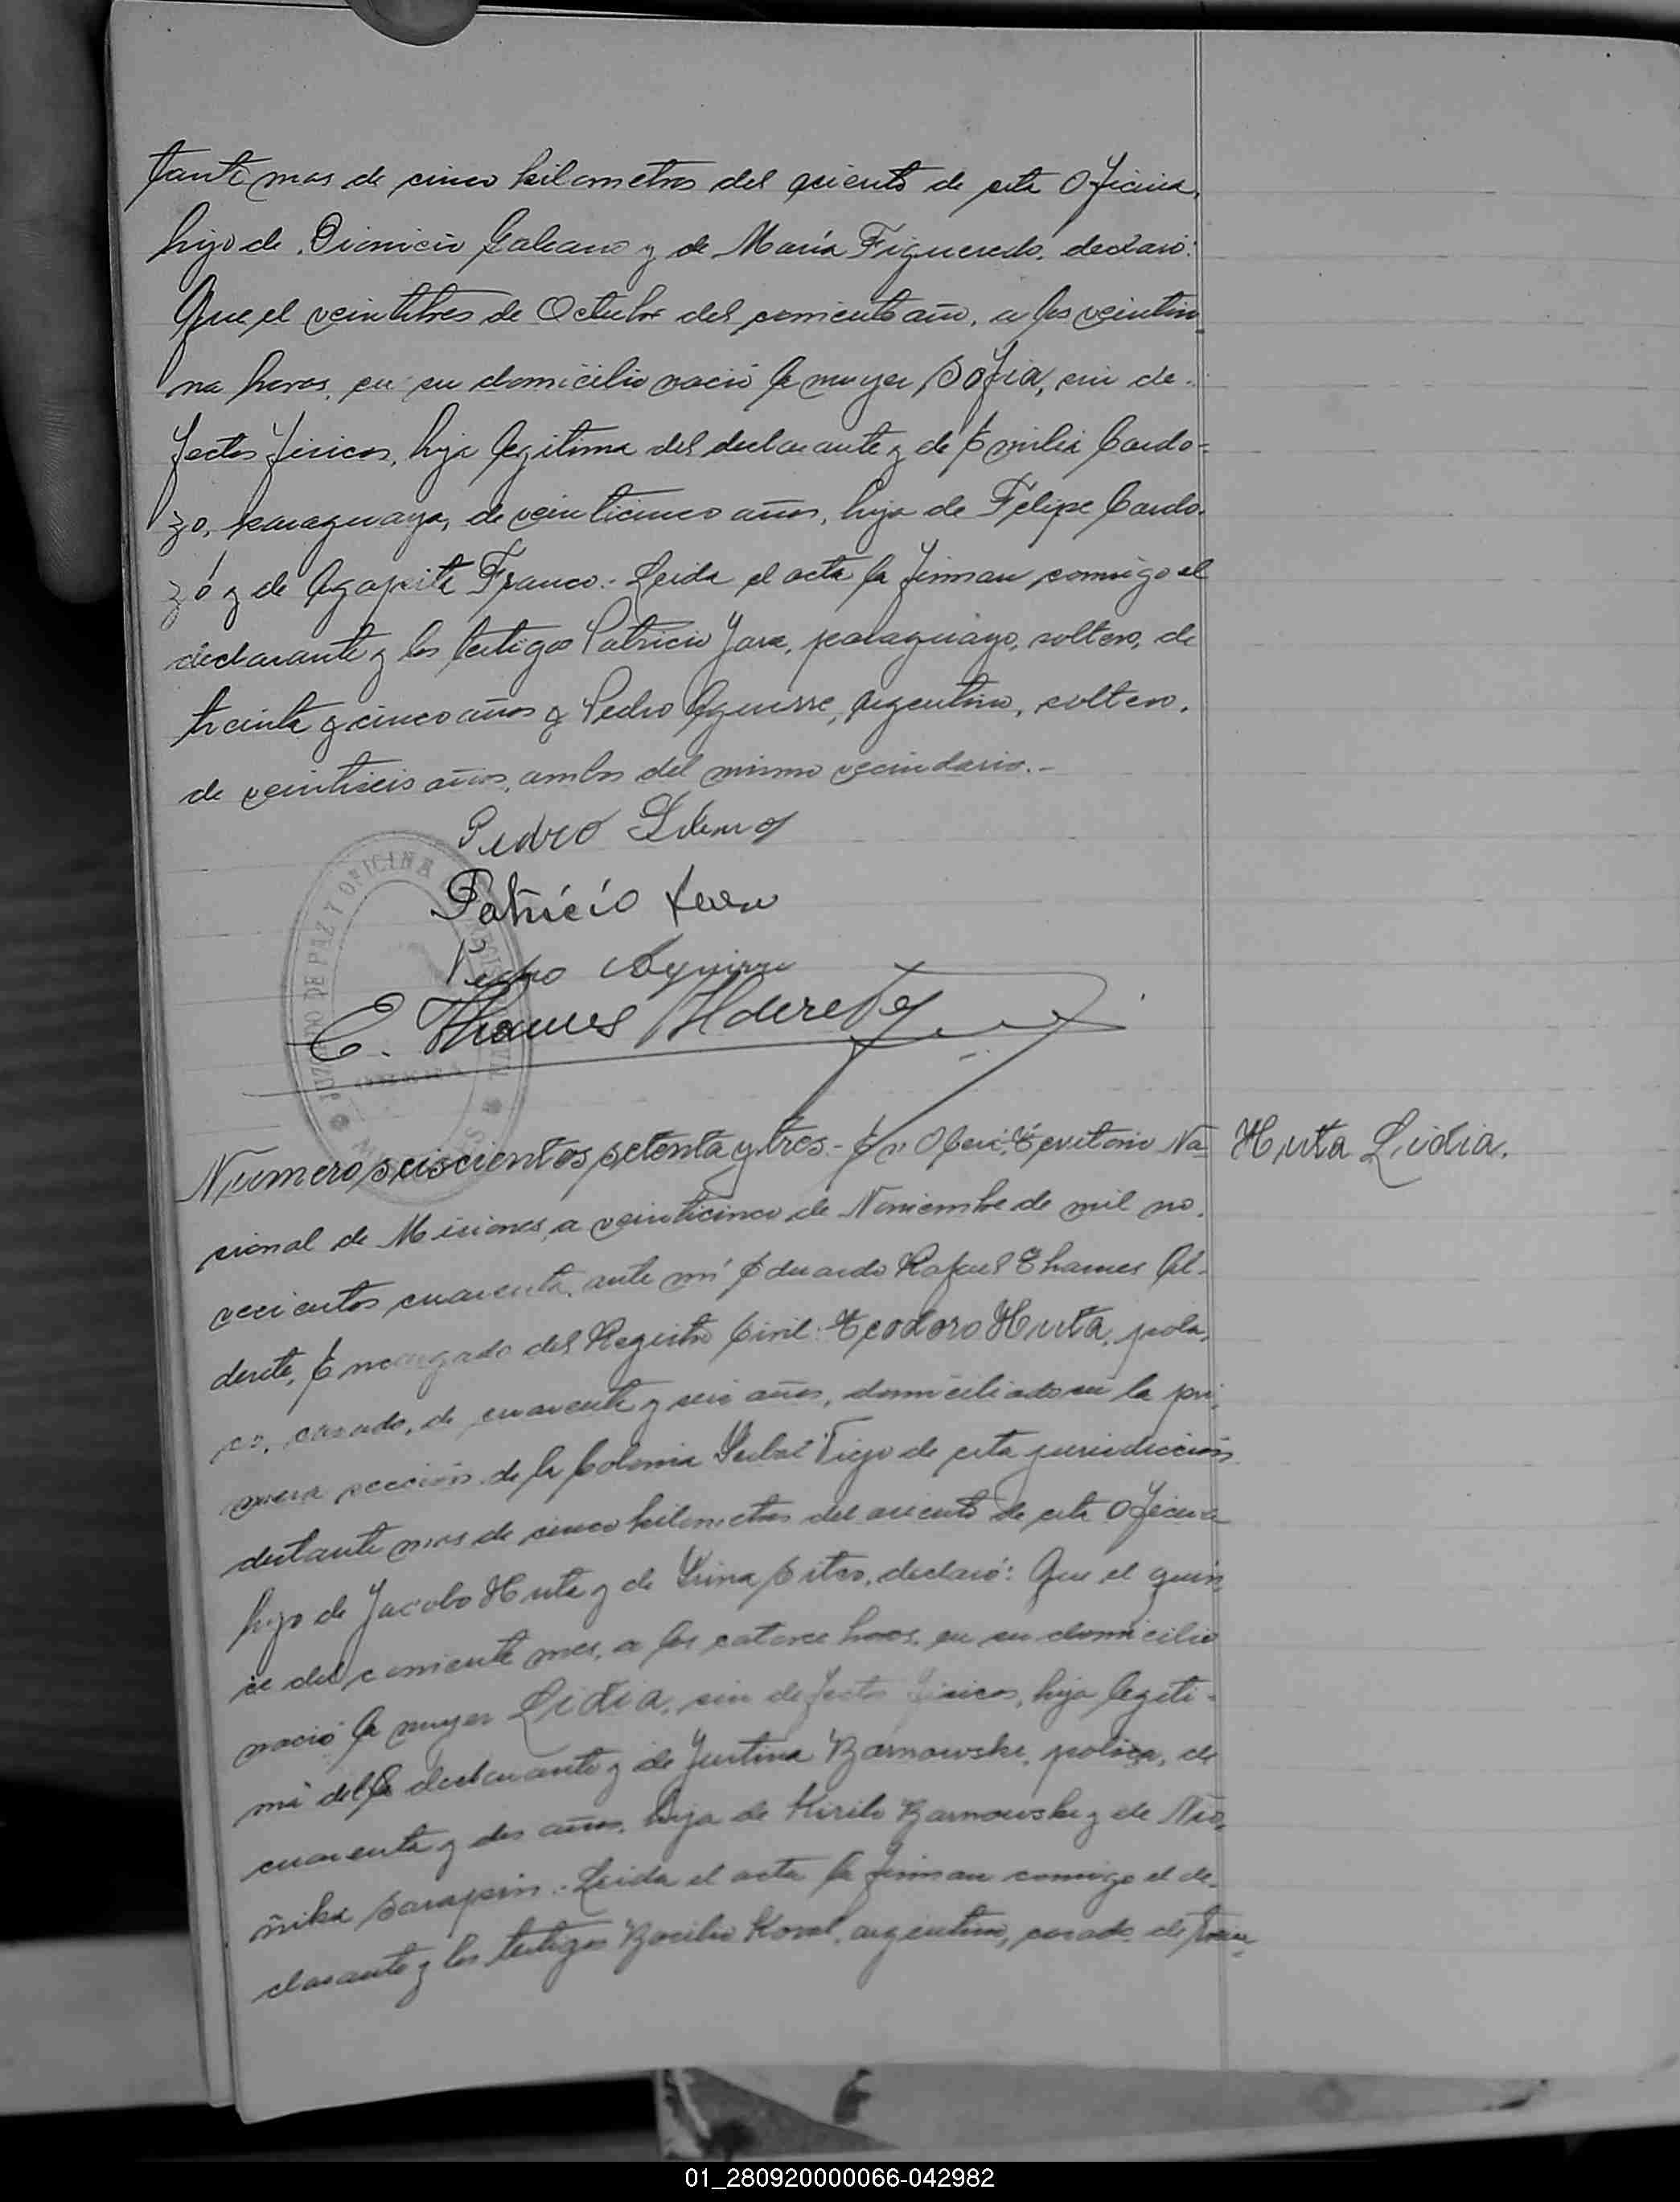 tante mas de cinco kilometros del asiento de esta Oficina,
hijo de Dionicio Galeano y de María Figueredo, declaró:
Que el veintitres de Octubre del corriente año, a las veintiu
na horas, en su domicilio nació la mujer Sofia, sin de-
fectos fisicos, hija legitima del declarante y de Emilia Cardo=
zo, paraguaya, de veinticinco años, hija de Felipe Cardo-
zo y de Agapita Franco.- Leida el acta la firman conmigo el
declarante y los testigos Patricio Jara, paraguayo, soltero, de
treinta y cinco años y Pedro Aguirre, argentino, soltero,
de veintiseis años, ambos del mismo vecindario.-
Pedro
Patricio Jara
Pedro Aguirre
E. Thames Alderete
JUZGADO DE PAZ Y OFICINA
Numero seiscientos setenta y tres.- En Oberá, Territorio Na- Huta Lidia.
cional de Misiones, a veinticinco de Noviembre de mil no-
vecientos cuarenta, ante mí Eduardo Rafael Thames Al-
derete, Encargado del Registro Civil: Teodoro Huta, pola-
co, casado, de cuarenta y seis años, domiciliado en la pri-
mera sección de la Colonia Yerbal Viejo de esta jurisdicción
distante mas de cinco kilometros del asiento de esta Oficina
hijo de Jacobo Huta y de declaró: Que el quin-
ce del corriente mes, a las catorce horas, en su domicilio
nació la mujer Lidia, sin defectos fisicos, hija legiti-
ma del declarante y de Justina Barnowski, polaca, de
cuarenta y dos años, hija de Kirilo Barnowski y de
Sarapin.- Leida el acta la firman conmigo el de-
clarante y los testigos Basilio Koval, argentino, casado, de trein-
01_280920000066-042982